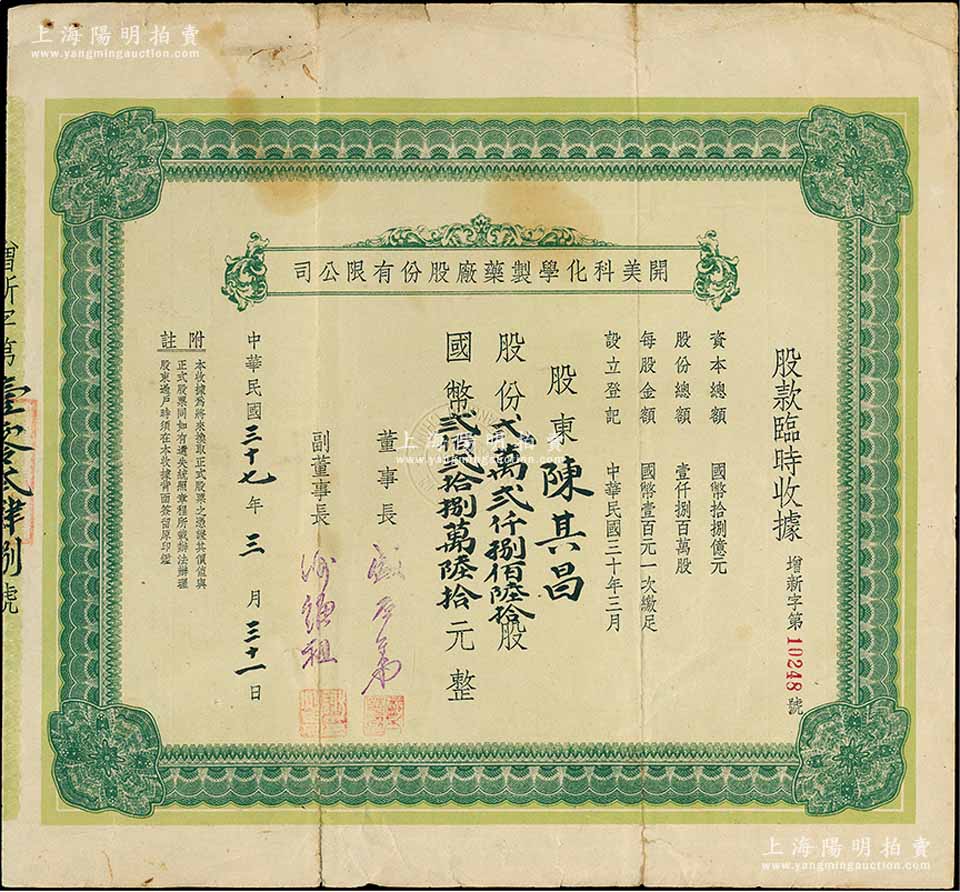 上海陽明拍賣
www.yangmingauction.com
上海陽明拍賣
www.yangmingauction.com
開美科化學製藥廠股份有限公司
股款臨時收據 增新字第10248號
資本總額 國幣拾捌億元
股份總額 壹仟捌百萬股
每股金額 國幣壹百元一次繳足
設立登記 中華民國三十年三月
股東 陳其昌
股份 弍萬弍仟捌佰陸拾股
國幣 弍佰弍拾捌萬陸仟元整
董事長
副董事長
中華民國三十七年三月三十一日
附註
本收據為將來換取正式股票之憑證其價值與
正式股票同如有遺失統照章程所載辦法辦理
股東過戶時須在本收據背面簽留原印鑑
增新字第壹零弍肆捌號
上海陽明拍賣
www.yangmingauction.com